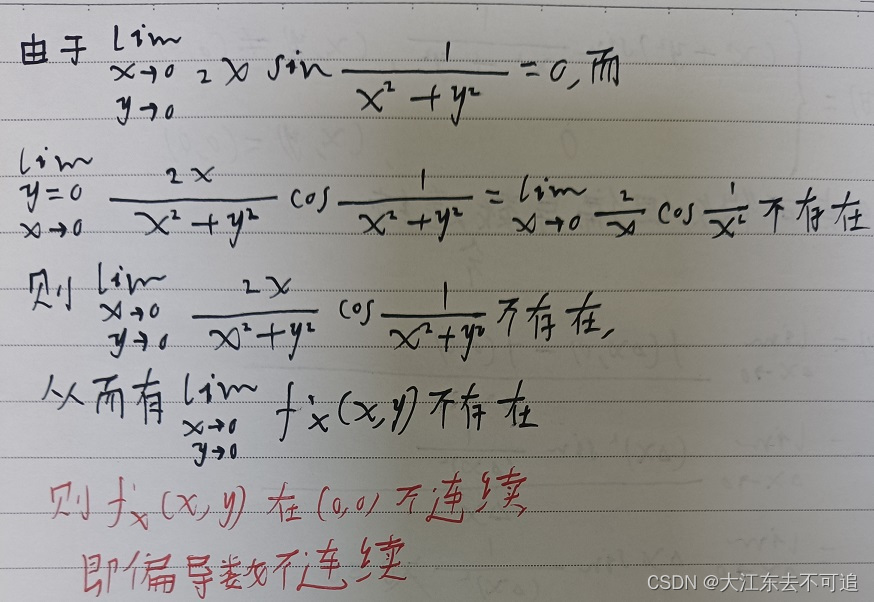 由于 lim x→0 y→0 2x sin 1/(x²+y²) = 0, 而
lim y=0 x→0 2x/(x²+y²) cos 1/(x²+y²) = lim x→0 2/x cos 1/x² 不存在
则 lim x→0 y→0 2x/(x²+y²) cos 1/(x²+y²) 不存在,
从而有 lim x→0 y→0 f'x(x,y) 不存在
则 f'x(x,y) 在(0,0)不连续
即偏导数不连续
CSDN @大江东去不可追